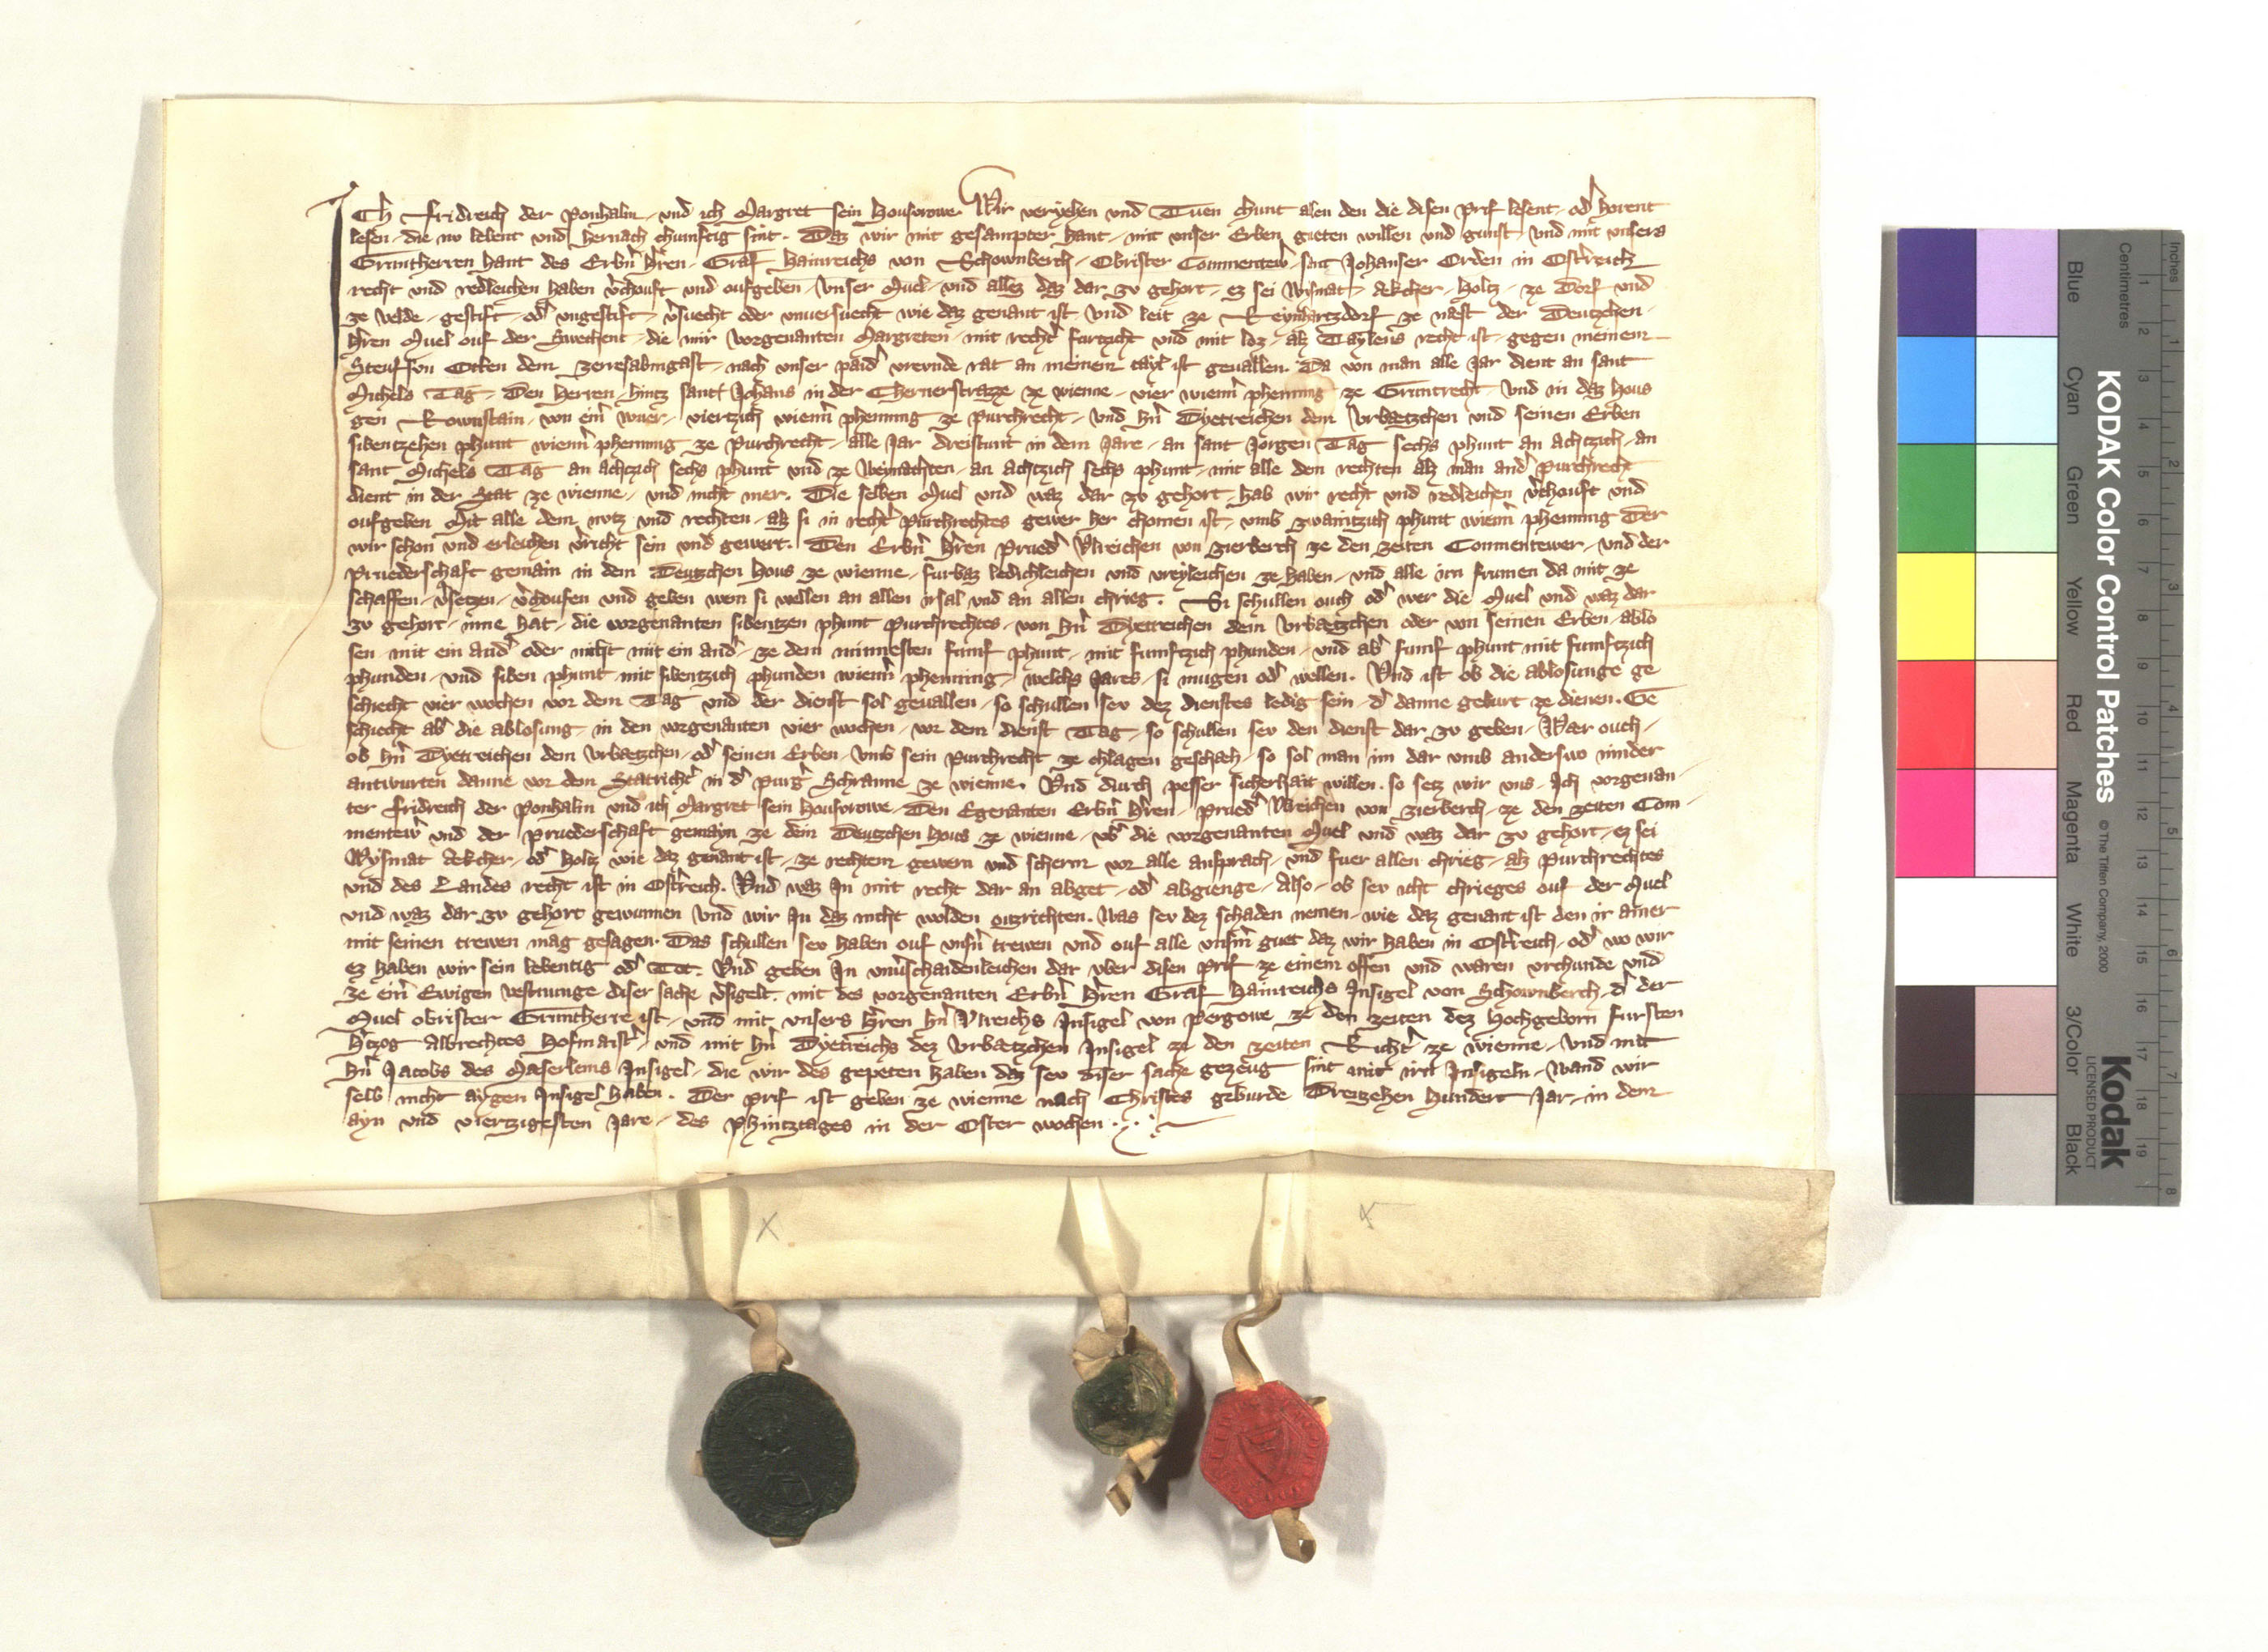 Ich Fridreich der Ponhalm und ich Margret sein Housvrowe Wir veryehen und Tuen chunt alen den die disen prif lesent od horent
lesen die nv lebent und hernach chunftig sint. Daz wir mit gesampter hant mit unser Erben gueten willen und gunst und mit unsers
Gruntherren hant des Erbn hren Graf Hainreichs von Schownberch Obrister Commentewr sant Johanser Orden in Ostreich
recht und redleichen haben vchouft und oufgeben Vnser Muel und allez daz dar zv gehort ez sei Wismat Aekcher Holtz ze Dorf und
ze velde gestift od ungestift vsuecht oder unversuecht wie daz genant ist und leit ze Reynhartzdorf ze naest der Deutzchen
hren Muel ouf der Swechent die mir vorgenanten Margreten mit recht furtzicht und mit loz alz Taylens recht ist gegen meinem
Steufson Otten dem nach unser paid vrevnde rat an meinem tayl ist gevallen. Da von man alle Jar dient an sant
Michels Tag Den Herren hintz sant Johans in der Chernerstrazze ze wienne vier wienn phenning ze Gruntrecht Und in daz hous
gen Rownstain von eim wuer viertzich wienn phenning ze purchrecht und hn Dyetreichen dem Vrbaetzchen und seinen Erben
sibentzehen phunt wienn phenning ze purchrecht alle Jar dreistunt in dem Jare an sant Jorgen Tag sechs phunt an achtzich an
sant Michels Tag an achtzich sechs phunt und ze Weinachten an achtzich sechs phunt mit alle dem rechten alz man and purchrecht
dient in der Stat ze wienne und nicht mer. Die selben Muel und waz dar zv gehort hab wir recht und redleichen vchouft und
oufgeben Mit alle dem nvtz und rechten alz si in recht purchrechtes gewer her chomen ist vmb zwaintzich phunt wienn phenning Der
wir schon und erleichen vricht sein und gewert. Den Erbn hren Prued Vlreichen von Zierberch ze den zeiten Commentewer und der
Pruederschaft gemain in dem Deutzchen Hous ze wienne furbaz ledichleichen und vreyleichen ze haben und alle irn frumen da mit ze
schaffen vsetzen vchoufen und geben wem si wellen an allen irsal und an allen chrieg. Si schullen ouch od wer die Muel und waz dar
zv gehort inne hat die vorgenanten sibentzen phunt purchrechtes von hn Dyetreichen dem Vrbaetzchen oder von seinen Erben ablo
sen mit ein and oder nicht mit ein and ze dem minnesten funf phunt mit funftzich phunden und ab funf phunt mit funftzich
phunden und siben phunt mit sibentzich phunden wienn phenning welchs Jares si mugen od wellen. Und ist ob die ablosunge ge
schiecht vier wochen vor dem Tag und der dienst sol gevallen so schullen sev dez dienstes ledig sein d danne geburt ze dienen. Ge
schiecht ab die ablosung in den vorgenanten vier wochen vor dem dienst Tag so schullen sev den dienst dar zv geben Waer ouch
ob hn Dyetreichen dem Vrbaetzchen od seinen Erben umb sein purchrecht ze chlagen geschach so sol man im dar vmb anderswo ninder
antwurten danne vor dem Statricht in d purg Schranne ze wienne. Und durch pesser sicherhait willen so setz wir uns Ich vorgenan
ter Fridreich der Ponhalm und ich Margret sein Housvrowe Den Egenanten Erbn hren Prued Vlreichen von Zierberch ze den zeiten Com
mentewr und der Pruederschaft gemayn ze dem Deutzchen hous ze wienne vb die vorgenanten Muel und waz dar zv gehort ez sei
Wysmat Aekcher od holtz wie daz genant ist ze rechtem gewern und scherm vor alle ansprach und fuer allen chrieg alz purchrechtes
und des Landes recht ist in Ostreich. Und waz In mit recht dar an abget od abgienge Also ob sev icht chrieges ouf der Muel
und waz dar zv gehort gewunnen Und wir In daz nicht wolden ouzrichten. Was sev dez schaden nemen wie daz genant ist den ir ainer
mit seinen trewen mag gesagen. Das schullen sev haben ouf unsn trewen und ouf alle unserm guet daz wir haben in Ostreich od wo wir
ez haben wir sein lebentig od Tot. Und geben In unvschaidenleichen dar vber disen prif ze einem offen und waren vrchunde und
ze ein Ewigen vestnunge diser sache vsigelt mit des vorgenanten Erbn hren Graf Hainreichs Insigel von Schownberch d der
Muel obrister Gruntherre ist und mit unsers hren hn Vlreichs Insigel von Pergowe ze den zeiten dez Hochgeborn fursten
Htzog Albrechtes Hofmaist und mit hn Dyetreichs dez Vrbaetzchen Insigel ze den zeiten Richt ze wienne und mit
hn Jacobs des Maeserleins Insigel die wir des gepeten haben daz sev diser sache gezeug sint mit irn Insigeln Wand wir
selb nicht aygen Insigel haben. Der prif ist geben ze wienne nach Christes geburde Dreutzehen Hundert Jar in dem
ayn und viertzigesten Jare des Phintztages in der Oster wochen
KODAK Color Control Patches © The Tiffen Company, 2000
Kodak
LICENSED PRODUCT
Inches
Centimetres
Blue Cyan Green Yellow Red Magenta White 3/Color Black
1 2 3 4 5 6 7 8
1 2 3 4 5 6 7 8 9 10 11 12 13 14 15 16 17 18 19